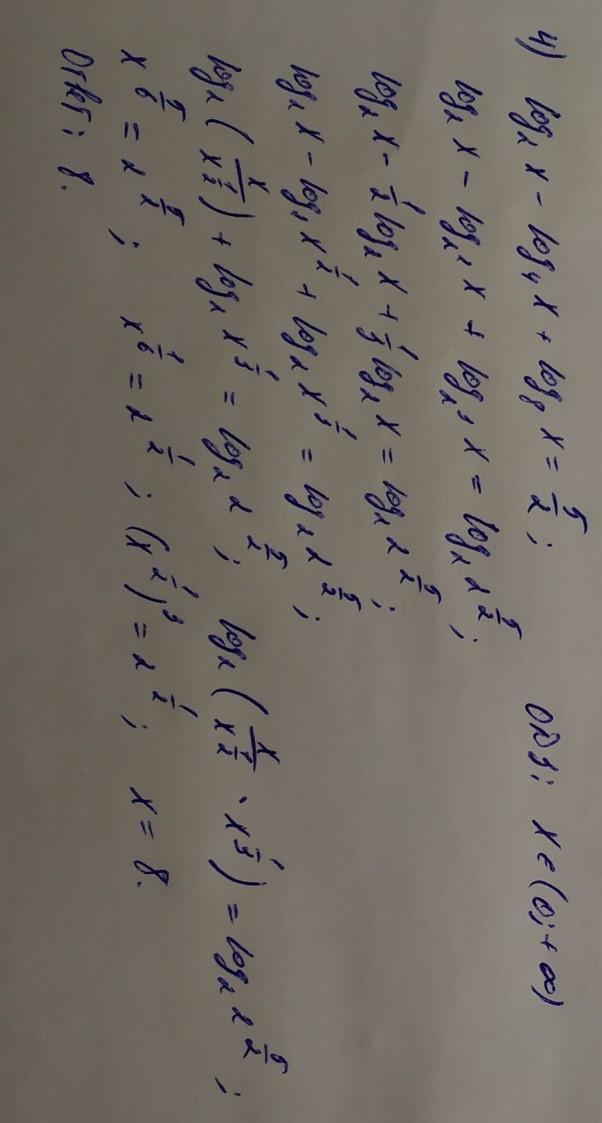 4) log₂ x - log₄ x + log₈ x = 5/2 ; ОДЗ: x ∈ (0; +∞)
log₂ x - log₂² x + log₂³ x = log₂ 2^(5/2) ;
log₂ x - 1/2 log₂ x + 1/3 log₂ x = log₂ 2^(5/2) ;
log₂ x - log₂ x^(1/2) + log₂ x^(1/3) = log₂ 2^(5/2) ;
log₂ (x / x^(1/2)) + log₂ x^(1/3) = log₂ 2^(5/2) ; log₂ (x / x^(1/2) · x^(1/3)) = log₂ 2^(5/2) ;
x^(5/6) = 2^(5/2) ; x^(1/6) = 2^(1/2) ; (x^(1/2))^3 = 2^(1/2) ; x = 8.
Ответ: 8.